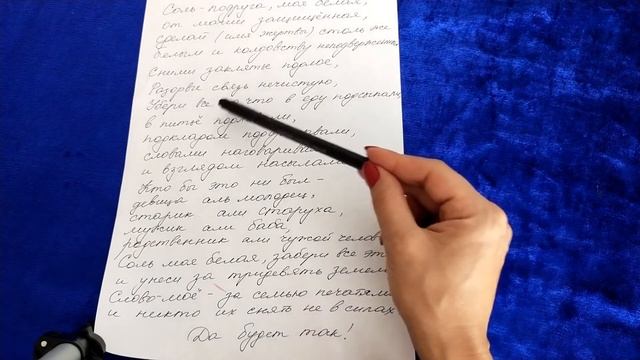 Соль-подруга, моя белая,
от магии защищённая,
сделай (имя жертвы) столь же
белым и колдовству неподверженным
Сними заклятье подлое,
Разорви связь нечистую,
Убери все что в еду подсыпали,
в питьё
подкладом
словами наговаривали
и взглядом насылали
Кто бы это ни был -
девица аль молодец,
старик али старуха,
мужик али баба,
родственник али чужой
Соль моя белая, забери все это
и унеси за тридевять земель
Слово моё - за семью печатями
и никто их снять не в силах
Да будет так!